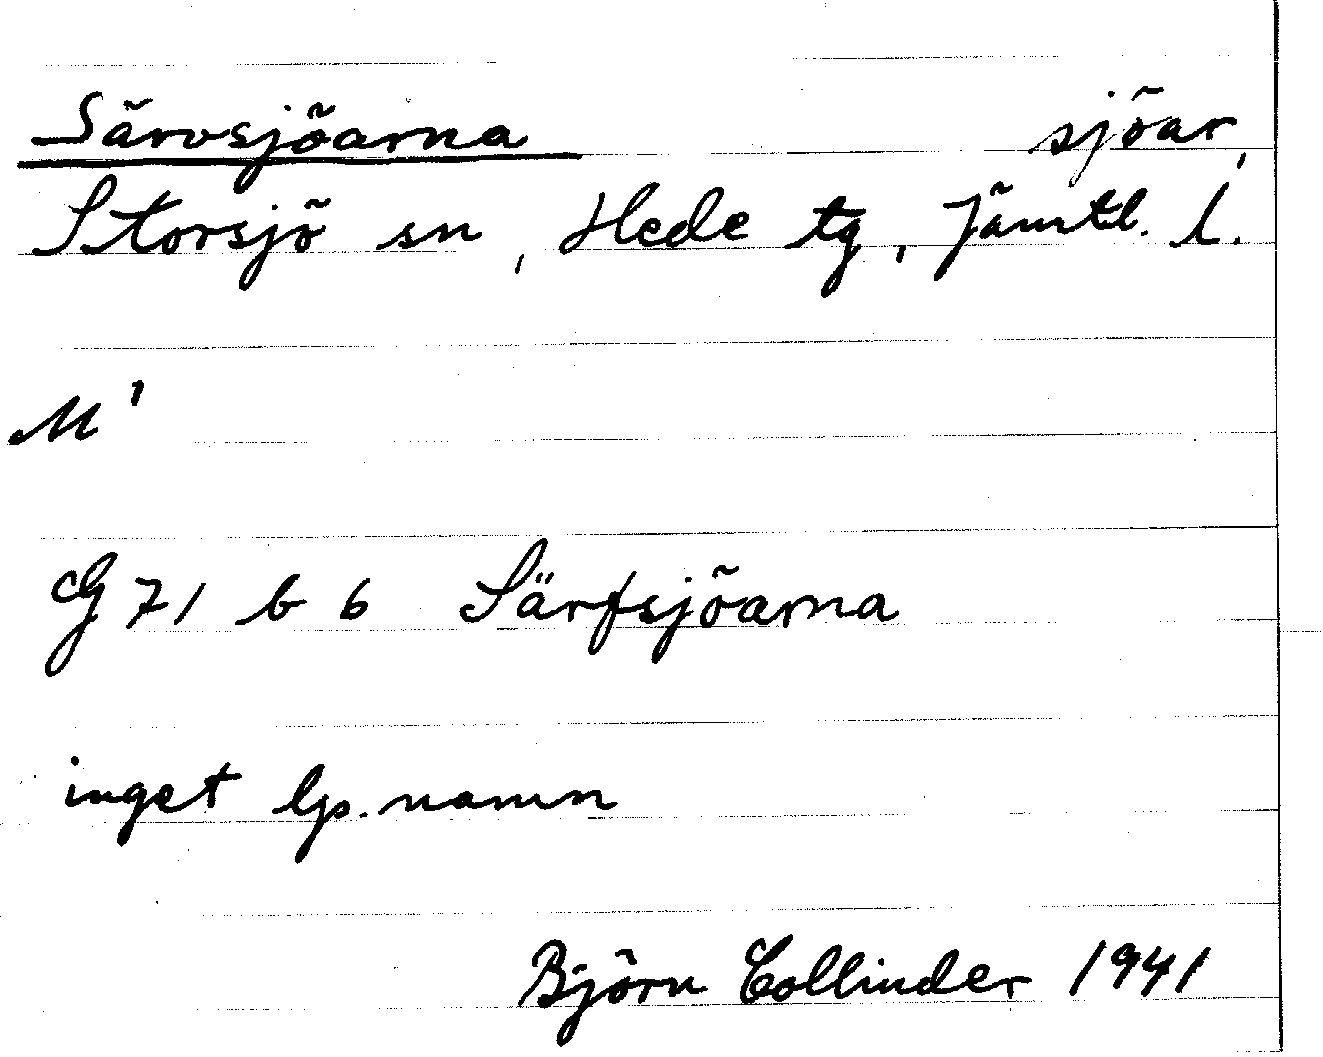 Särvsjöarna sjöar,
Storsjö sn, Hede tg, Jämtl. l.
M'
G 71 b 6 Särfsjöarna
inget lp. namn
Björn Collinder 1941